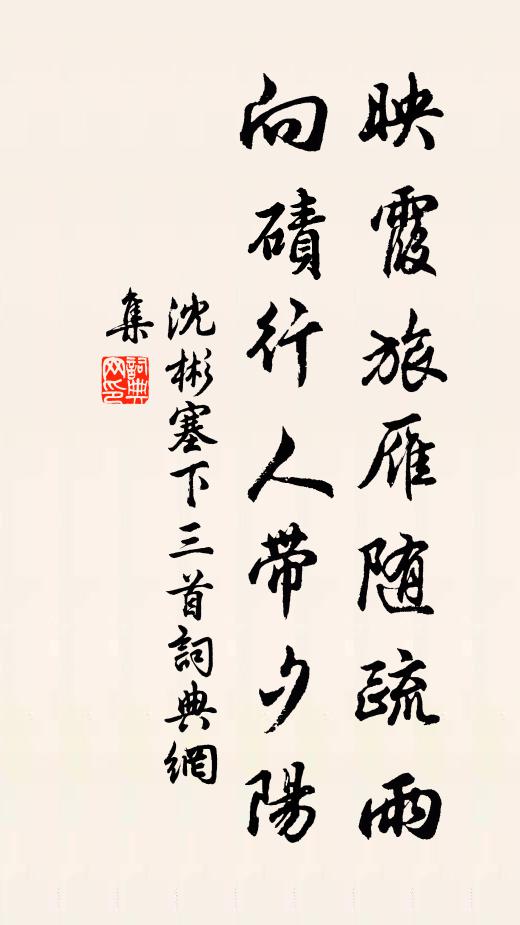 映霞旅雁随疏雨
向磧行人帶夕陽
沈彬塞下三首詞典網
集
詞典网印